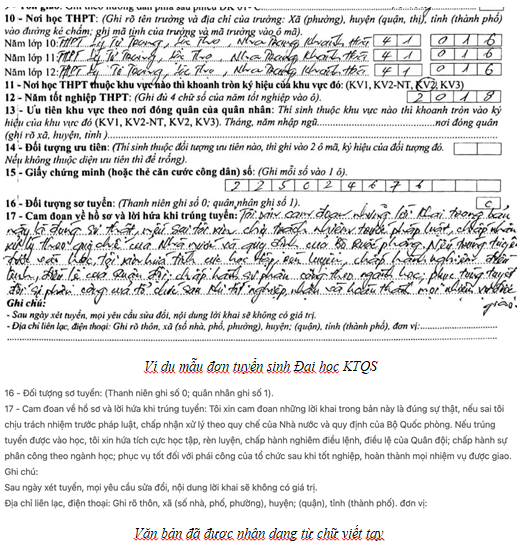 10 - Nơi học THPT: (Ghi rõ tên trường và địa chỉ của trường: Xã (phường), huyện (quận, thị), tỉnh (thành phố)
vào đường kẻ chấm; ghi mã tỉnh của trường và mã trường vào ô mã).
Năm lớp 10: THPT Lý Tự Trọng, Lộc Thọ, Nha Trang, Khánh Hòa 4 1 0 1 6
Năm lớp 11: THPT Lý Tự Trọng, Lộc Thọ, Nha Trang, Khánh Hòa 4 1 0 1 6
Năm lớp 12: THPT Lý Tự Trọng, Lộc Thọ, Nha Trang, Khánh Hòa 4 1 0 1 6
11 - Nơi học THPT thuộc khu vực nào thì khoanh tròn ký hiệu của khu vực đó: (KV1, KV2-NT, KV2, KV3)
12 - Năm tốt nghiệp THPT: (Ghi đủ 4 chữ số của năm tốt nghiệp vào ô). 2 0 1 8
13 - Ưu tiên khu vực theo nơi đóng quân của quân nhân: Thí sinh thuộc khu vực nào thì khoanh tròn vào ký
hiệu của khu vực đó (KV1, KV2-NT, KV2, KV3). Tháng, năm nhập ngũ nơi đóng quân
(ghi rõ xã, huyện, tỉnh)
14 - Đối tượng ưu tiên: (Thí sinh thuộc đối tượng ưu tiên nào, thì ghi vào 2 ô mã, ký hiệu của đối tượng đó.
Nếu không thuộc diện ưu tiên thì để trống).
15 - Giấy chứng minh (hoặc thẻ căn cước công dân) số: (Ghi mỗi số vào 1 ô).
2 2 5 0 2 4 6 7 6
16 - Đối tượng sơ tuyển: (Thanh niên ghi số 0; quân nhân ghi số 1).
17 - Cam đoan về hồ sơ và lời hứa khi trúng tuyển: Tôi xin cam đoan những lời khai trong bản
này là đúng sự thật, nếu sai tôi xin chịu trách nhiệm trước pháp luật, chấp nhận
xử lý theo quy chế của Nhà nước và quy định của Bộ Quốc phòng. Nếu trúng tuyển
được vào học, tôi xin hứa tích cực học tập, rèn luyện, chấp hành nghiêm điều
lệnh, điều lệ của Quân đội; chấp hành sự phân công theo ngành học; phục tùng tuyệt
đối sự phân công của tổ chức sau khi tốt nghiệp, nhận và hoàn thành mọi nhiệm vụ được
giao.
Ghi chú:
- Sau ngày xét tuyển, mọi yêu cầu sửa đổi, nội dung lời khai sẽ không có giá trị.
- Địa chỉ liên lạc, điện thoại: Ghi rõ thôn, xã (số nhà, phố, phường), huyện; (quận), tỉnh (thành phố), đơn vị:
Ví dụ mẫu đơn tuyển sinh Đại học KTQS
16 - Đối tượng sơ tuyển: (Thanh niên ghi số 0; quân nhân ghi số 1).
17 - Cam đoan về hồ sơ và lời hứa khi trúng tuyển: Tôi xin cam đoan những lời khai trong bản này là đúng sự thật, nếu sai tôi
chịu trách nhiệm trước pháp luật, chấp nhận xử lý theo quy chế của Nhà nước và quy định của Bộ Quốc phòng. Nếu trúng
tuyển được vào học, tôi xin hứa tích cực học tập, rèn luyện, chấp hành nghiêm điều lệnh, điều lệ của Quân đội; chấp hành sự
phân công theo ngành học; phục vụ tốt đối với phái công của tổ chức sau khi tốt nghiệp, hoàn thành mọi nhiệm vụ được giao.
Ghi chú:
Sau ngày xét tuyển, mọi yêu cầu sửa đổi, nội dung lời khai sẽ không có giá trị.
Địa chỉ liên lạc, điện thoại: Ghi rõ thôn, xã (số nhà, phố, phường), huyện; (quận), tỉnh (thành phố). đơn vị:
Văn bản đã được nhận dạng từ chữ viết tay